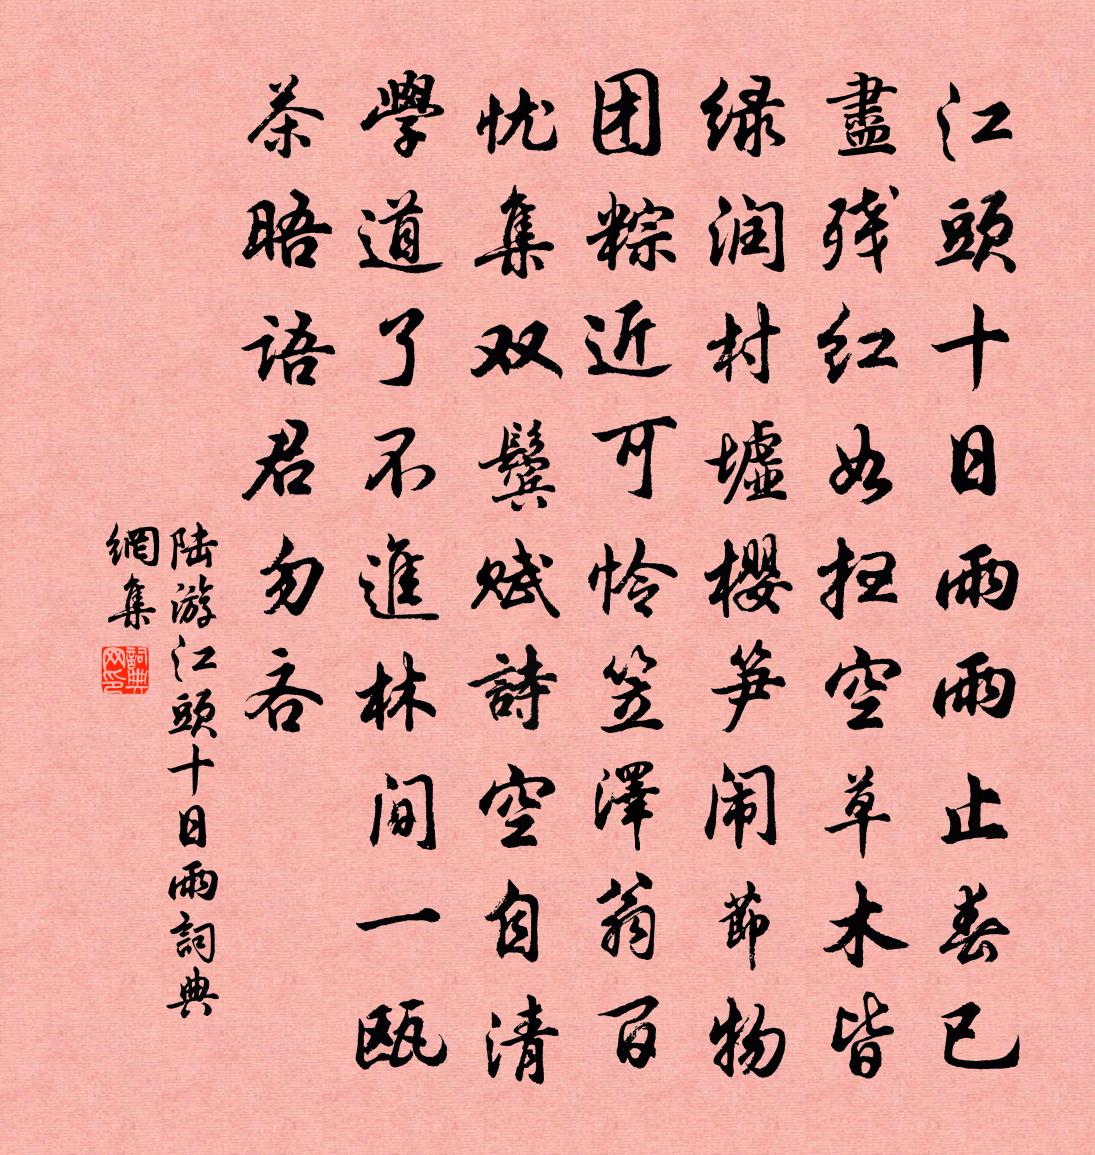 江頭十日雨雨止春已
盡残红如扫空草木皆
绿润村墟櫻笋闹節物
团粽近可怜笠澤翁百
忧集双鬓赋詩空自清
學道了不進林间一瓯
茶晤语君勿吝
陆游江頭十日雨詞典
網集
詞典网印